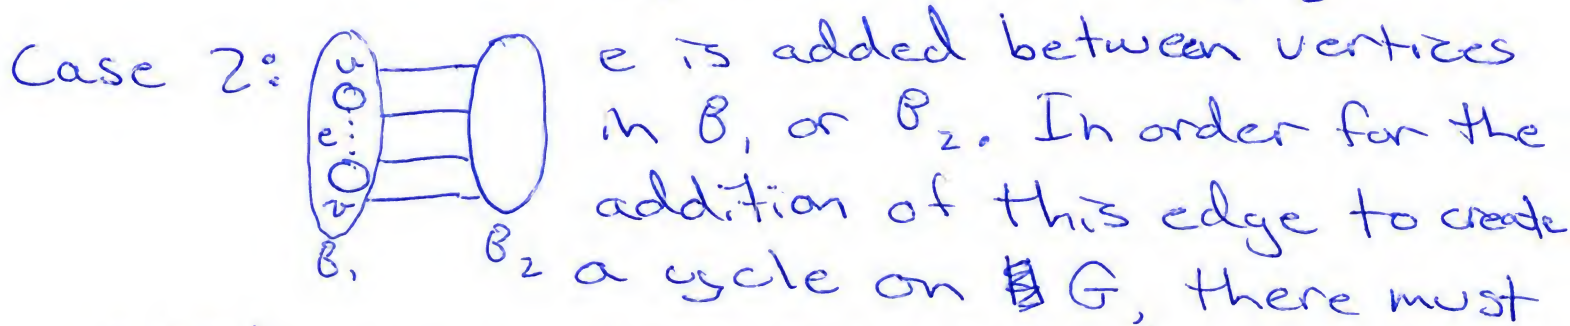 Case 2: e is added between vertices
in B₁ or B₂. In order for the
addition of this edge to create
a cycle on G, there must
u
e
v
B₁
B₂